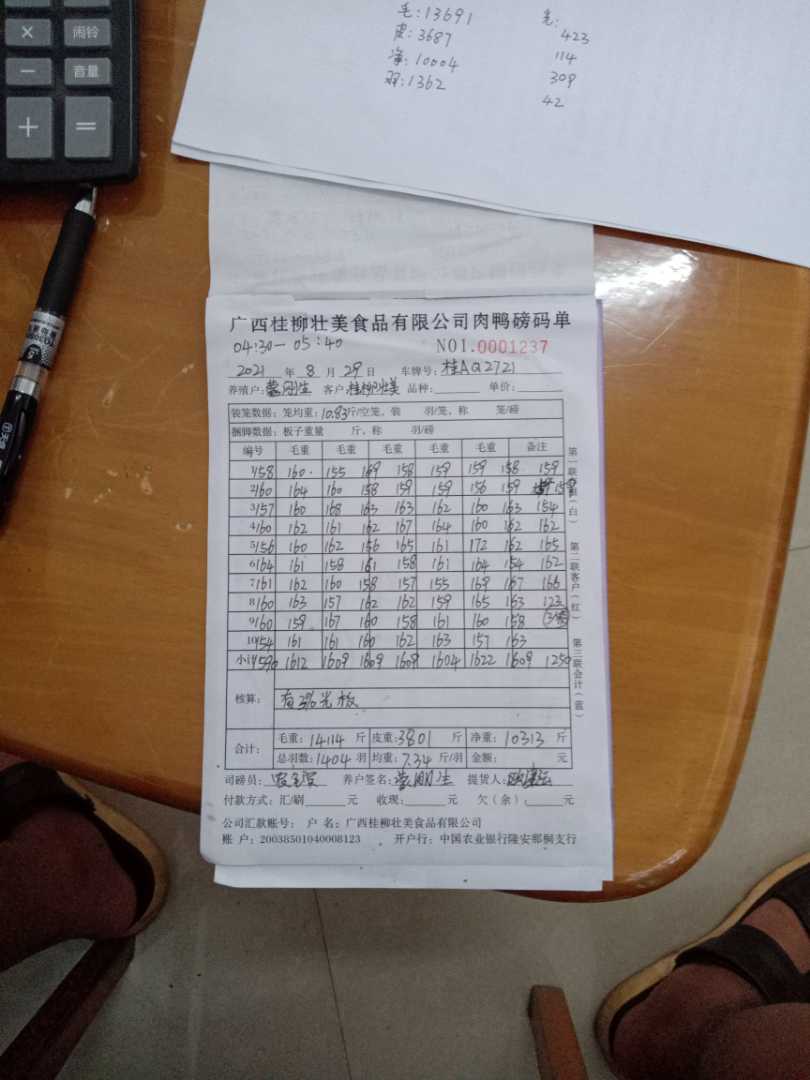 × 闹铃
− 音量
+ =
毛:13691
皮:3687
净:10004
羽:1362
423
114
309
42
广西桂柳壮美食品有限公司肉鸭磅码单
04:30－05:40 NO1.0001237
2021 年 8 月 29 日 车牌号:桂AQ2721
养殖户: 客户:桂柳壮美 品种: 单价:
装笼数据:笼均重:10.83斤/空笼,装 羽/笼,称 笼/磅
捆脚数据:板子重量 斤,称 羽/磅
编号 毛重 毛重 毛重 毛重 毛重 备注
1 158 160 155 169 158 159 159 158 159
2 160 164 160 158 159 159 156 159
3 157 160 168 163 163 162 160 163 154
4 160 162 161 162 167 164 160 162 162
5 156 160 162 156 165 161 172 162 165
6 164 161 158 161 158 161 164 154 162
7 161 162 160 158 157 155 169 167 166
8 160 163 157 162 162 159 165 163 123
9 160 159 167 160 158 161 160 158
10 154 161 161 160 162 163 157 163
小计 1590 1612 1609 1609 1609 1604 1622 1609 1250
核算:
合计: 毛重:14114 斤 皮重:3801 斤 净重:10313 斤
总羽数:1404 羽 均重:7.34 斤/羽 金额: 元
司磅员: 养户签名: 提货人:
付款方式:汇/刷 元 收现: 元 欠(余): 元
公司汇款账号: 户 名:广西桂柳壮美食品有限公司
账 户:20038501040008123 开户行:中国农业银行隆安那桐支行
第一联 (白)
第二联客户(红)
第三联会计(蓝)